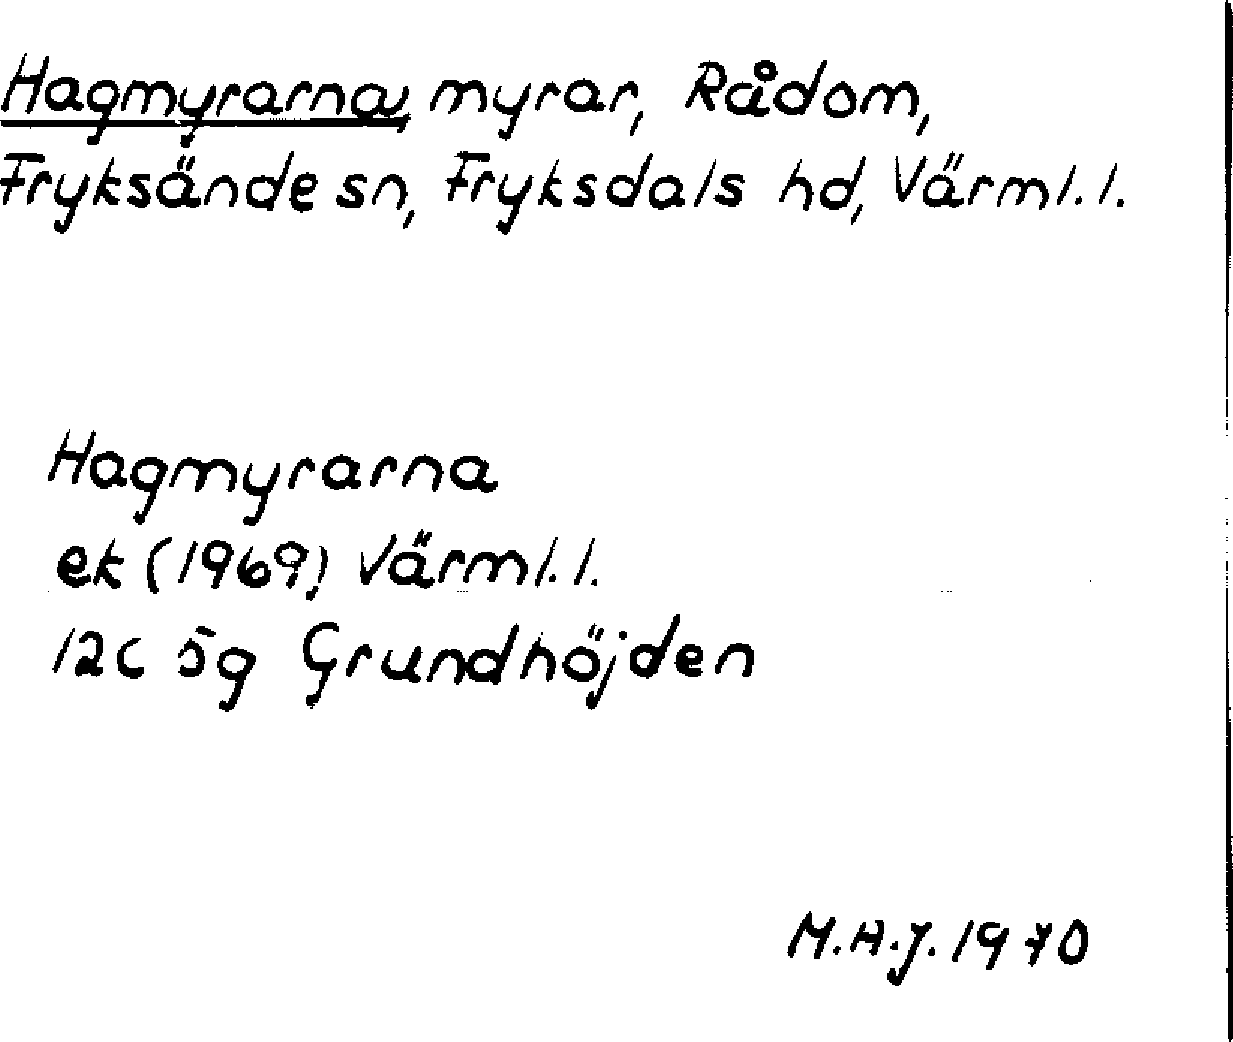 Hagmyrarna, myrar, Rådom,
Fryksände sn, Fryksdals hd, Värml. l.
Hagmyrarna
ek (1969) Värml. l.
12C 5g Grundhöjden
M.A.J. 1970